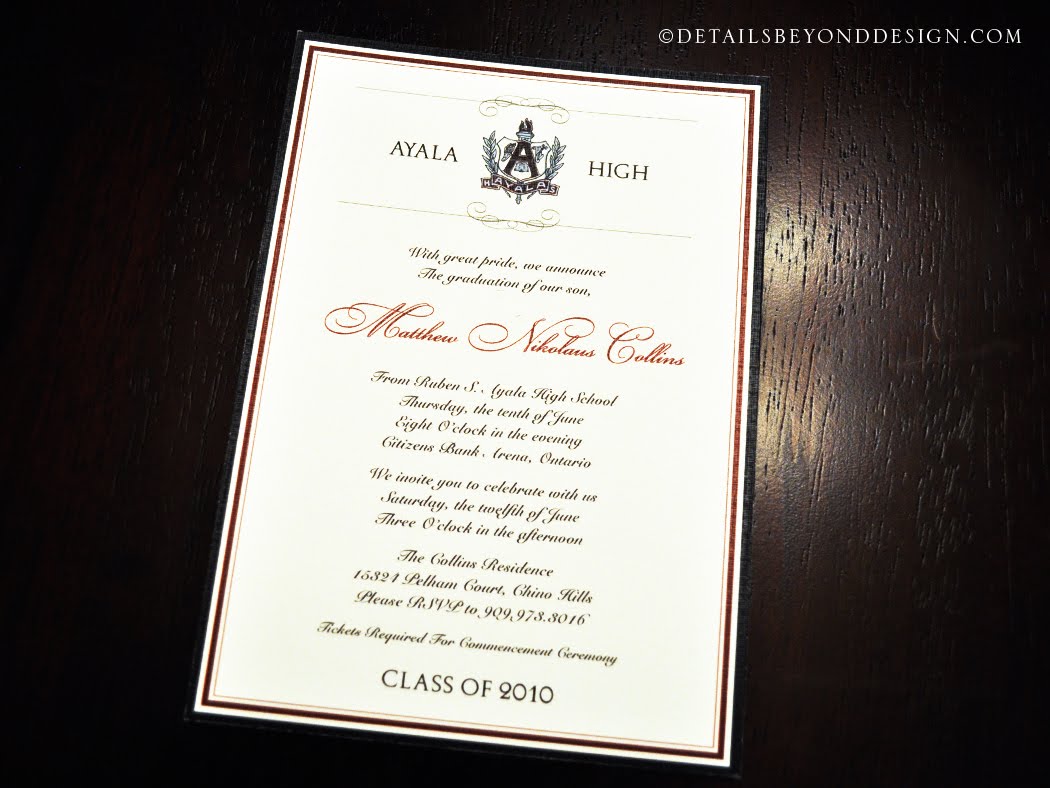 ©DETAILSBEYONDDESIGN.COM
AYALA HIGH
A
AYALA
With great pride, we announce
The graduation of our son,
Matthew Nikolaus Collins
From Ruben S. Ayala High School
Thursday, the tenth of June
Eight O'clock in the evening
Citizens Bank Arena, Ontario
We invite you to celebrate with us
Saturday, the twelfth of June
Three O'clock in the afternoon
The Collins Residence
15324 Pelham Court, Chino Hills
Please RSVP to 909.973.3016
Tickets Required For Commencement Ceremony
CLASS OF 2010